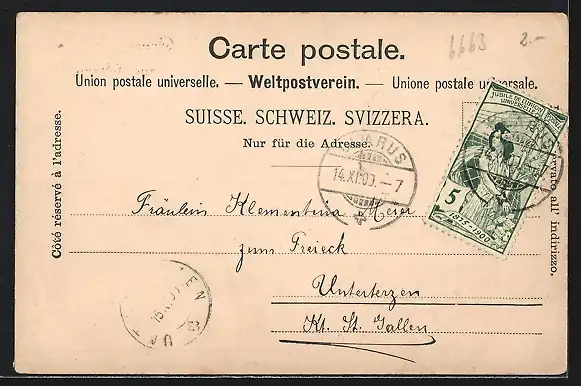 6663 2.-
Carte postale.
Union postale universelle. — Weltpostverein. — Unione postale universale.
SUISSE. SCHWEIZ. SVIZZERA.
Nur für die Adresse.
Côté réservé à l'adresse.
GLARUS
14.XI.00.-7
JUBILÉ DE L'UNION POSTALE
UNIVERSELLE
5
1875-1900
all' indirizzo.
Fräulein Klementina
zum Freieck
Unterterzen
Kt. St. Gallen